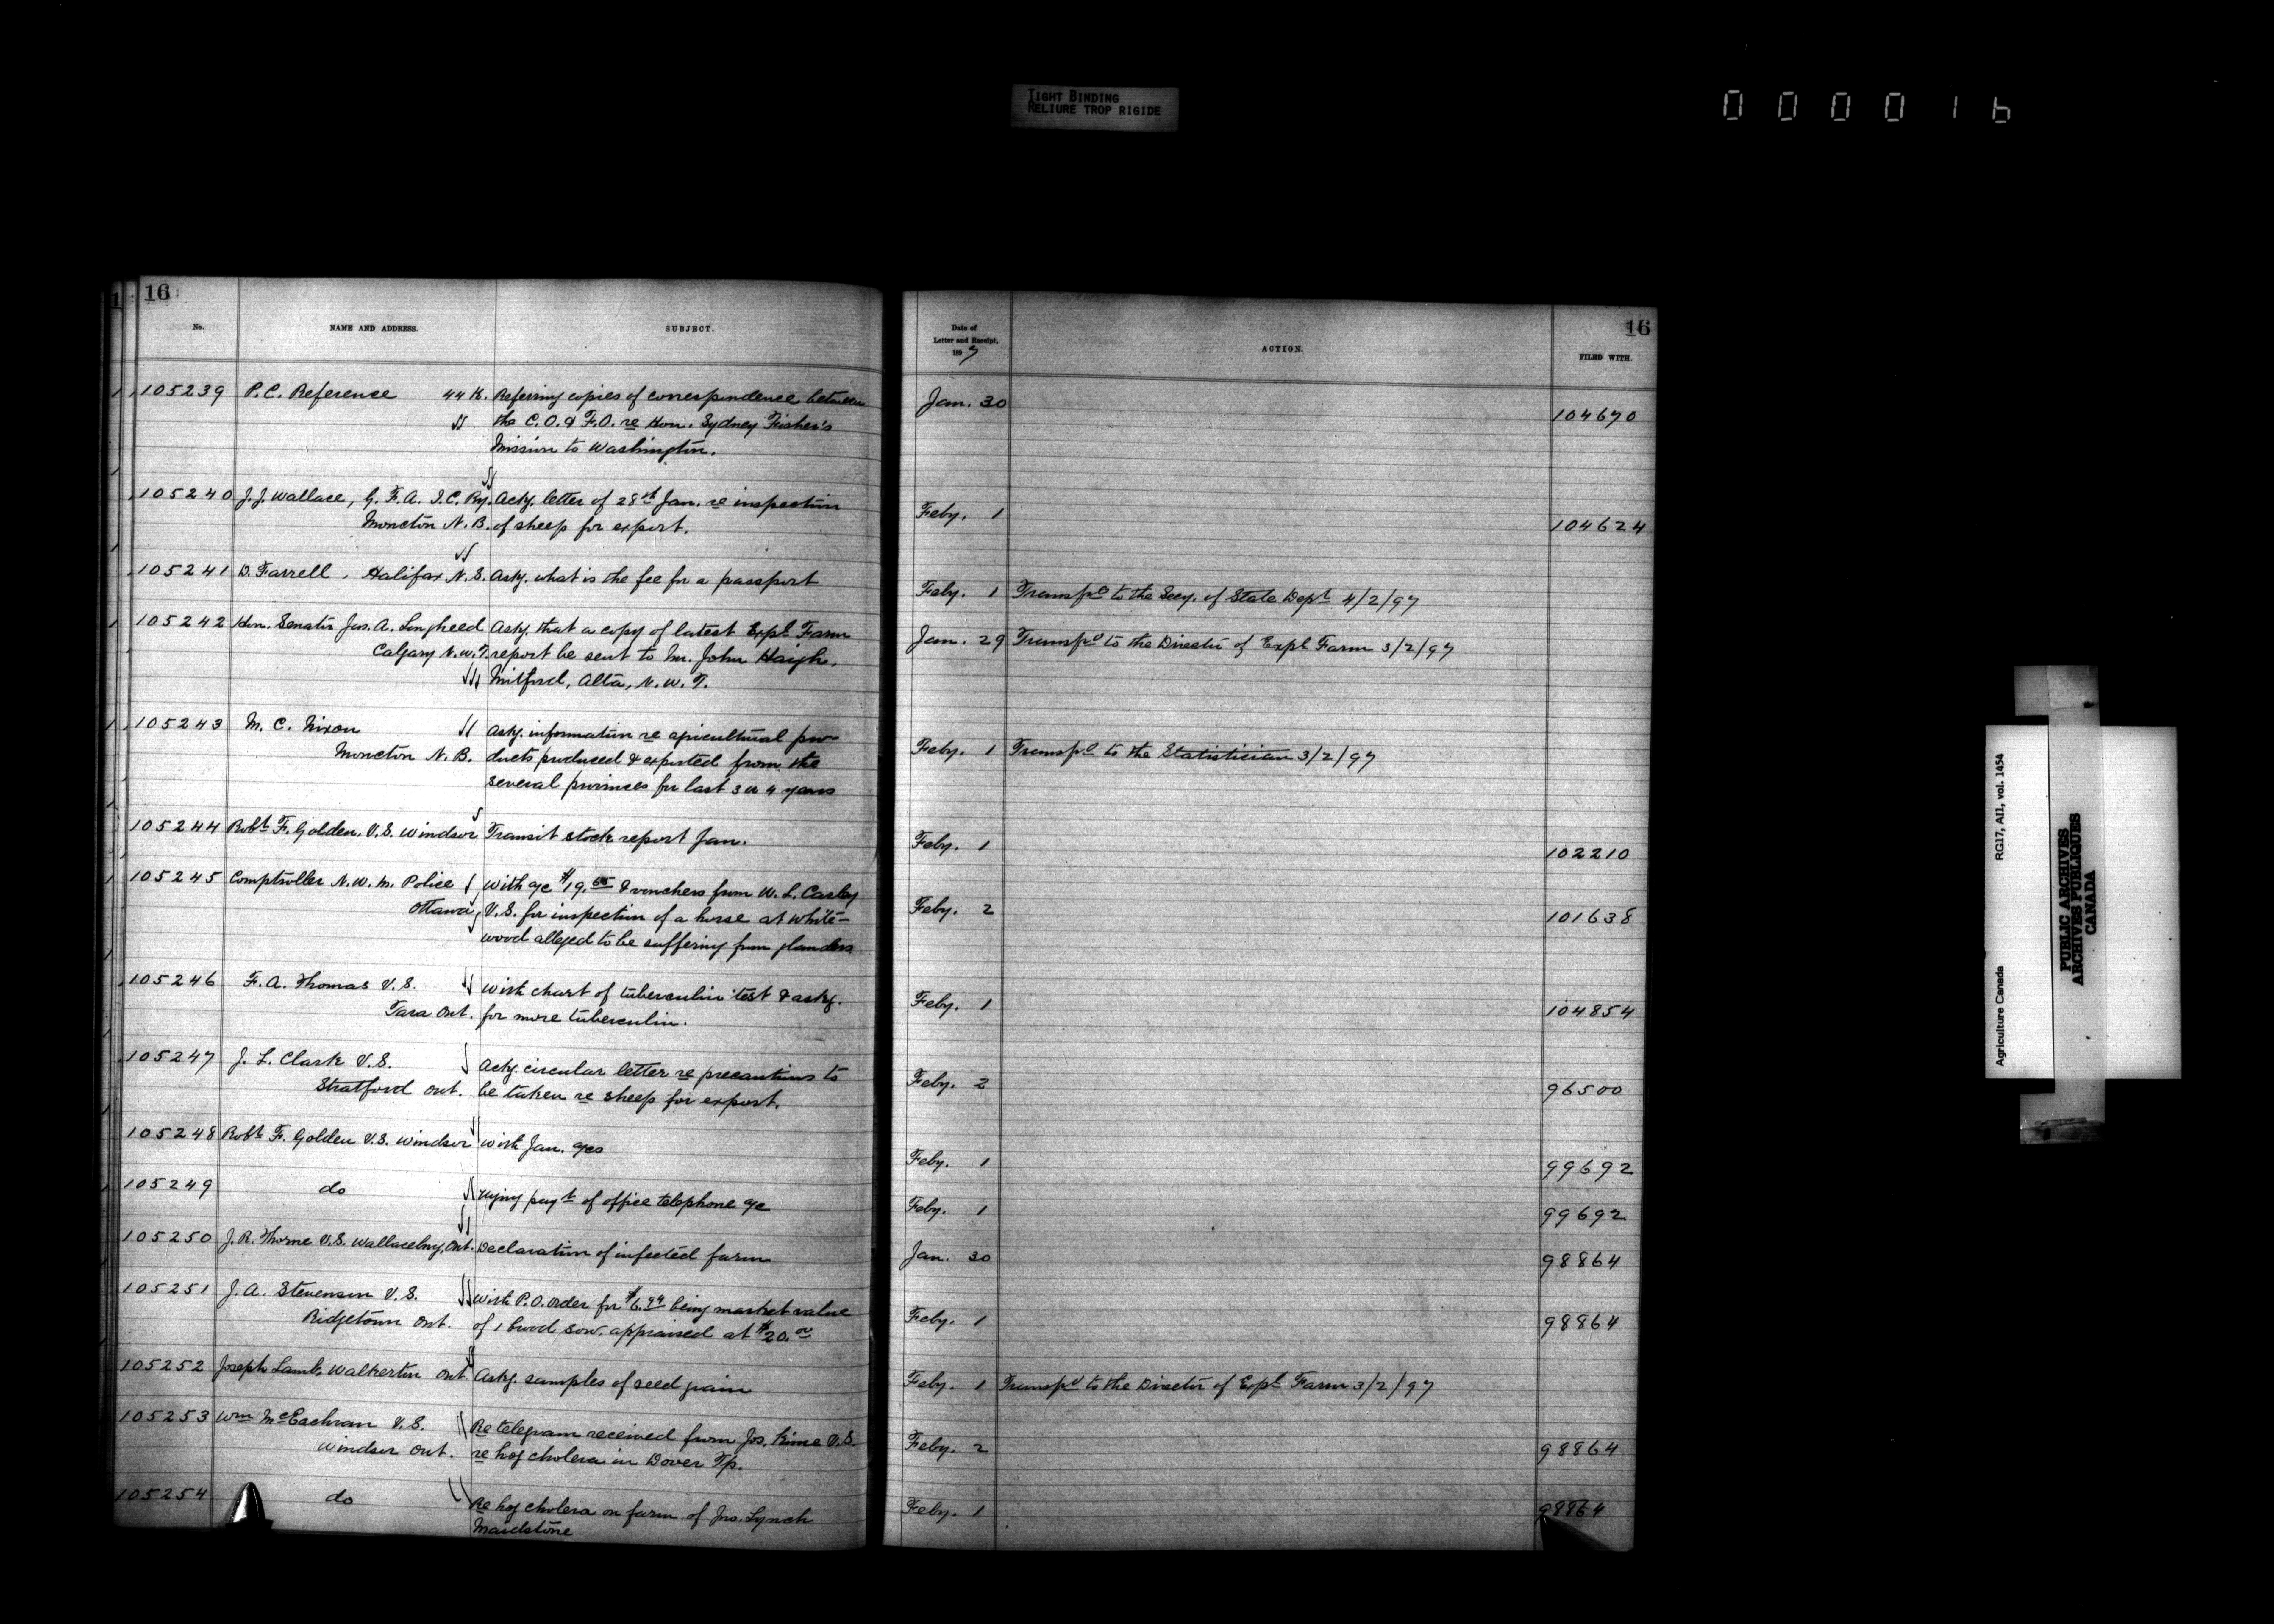 TIGHT BINDING
RELIURE TROP RIGIDE
000016
16
No. NAME AND ADDRESS. SUBJECT.
105239 P.C. Reference 44 K. Referring copies of correspondence between
the C.O. & F.O. re Hon. Sydney Fisher's
Mission to Washington.
105240 J.J. Wallace, G. F. A. I.C. Ry. Ackg. letter of 28th Jan. re inspection
Moncton N.B. of sheep for export.
105241 D. Farrell, Halifax N.S. Askg. what is the fee for a passport
105242 Hon. Senator Jas. A. Lougheed Askg. that a copy of latest Expl. Farm
Calgary N.W.T. report be sent to Mr. John Haigh,
Mitford, Alta, N.W.T.
105243 M. C. Nixon Askg. information re apicultural pro-
Moncton N.B. ducts produced & exported from the
several provinces for last 3 or 4 years
105244 Robt. F. Golden. V.S. Windsor Transit stock report Jan.
105245 Comptroller N.W.M. Police With a/c $19. & vouchers from W. L.
Ottawa V.S. for inspection of a horse at White-
wood alleged to be suffering from glanders
105246 F. A. Thomas V.S. With chart of tuberculin test & askg.
Tara Ont. for more tuberculin.
105247 J. L. Clark V.S. Ackg. circular letter re precautions to
Stratford Ont. be taken re sheep for export.
105248 Robt. F. Golden V.S. Windsor With Jan. a/cs
105249 do urging payt. of office telephone a/c
105250 J. R. Thorne V.S. Wallaceburg, Ont. Declaration of infected farm
105251 J. A. Stevenson V.S. With P.O. order for $6.94 being market value
Ridgetown Ont. of 1 brood sow, appraised at $20.00
105252 Joseph Lamb, Walkerton Ont. Askg. samples of seed grain
105253 Wm McEachran V.S. Re telegram received from Jos. Kime V.S.
Windsor Ont. re hog cholera in Dover Tp.
105254 do Re hog cholera on farm of Jno. Lynch
Maidstone
16
Date of
Letter and Receipt,
1897
ACTION. FILED WITH.
Jan. 30 104670
Feby. 1 104624
Feby. 1 Transfd to the Secy. of State Dept 4/2/97
Jan. 29 Transfd to the Director of Expl Farm 3/2/97
Feby. 1 Transfd to the Statistician 3/2/97
Feby. 1 102210
Feby. 2 101638
Feby. 1 104854
Feby. 2 96500
Feby. 1 99692
Feby. 1 99692
Jan. 30 98864
Feby. 1 98864
Feby. 1 Transfd to the Director of Expl Farm 3/2/97
Feby. 2 98864
Feby. 1 98864
Agriculture Canada RG17, AII, vol. 1454
PUBLIC ARCHIVES
ARCHIVES PUBLIQUES
CANADA